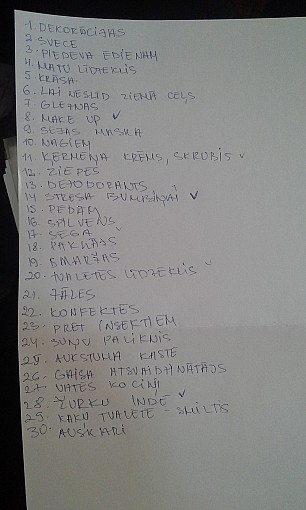 1 DEKORĀCIJAS
2. SVECE
3. PIEDEVA ĒDIENAM
4. MATU LĪDZEKLIS
5. KRĀSA
6. LAI NESLĪD ZIEMĀ CEĻŠ
7. GLEZNAS
8. MAKE UP ✓
9. SEJAS MASKA
10. NAGIEM
11. ĶERMEŅA KRĒMS, SKRUBIS ✓
12. ZIEPES
13. DEZODORANTS
14. STRESA BUMBIŅAI ✓
15. PĒDĀM
16. SPILVENS
17. SEGA
18. PAKLĀJS
19. SMARŽAS
20. TUALETES LĪDZEKLIS ✓
21. ZĀLES
22. KONFEKTES
23. PRET INSEKTIEM
24. SUŅU PALIKNIS
25. AUKSTUMA KASTE
26. GAISA ATSVAIDZINĀTĀJS
27. VATES KOCIŅI
28. ŽURKU INDE ✓
29. KAĶU TUALETE - SMILTIS
30. AUSKARI